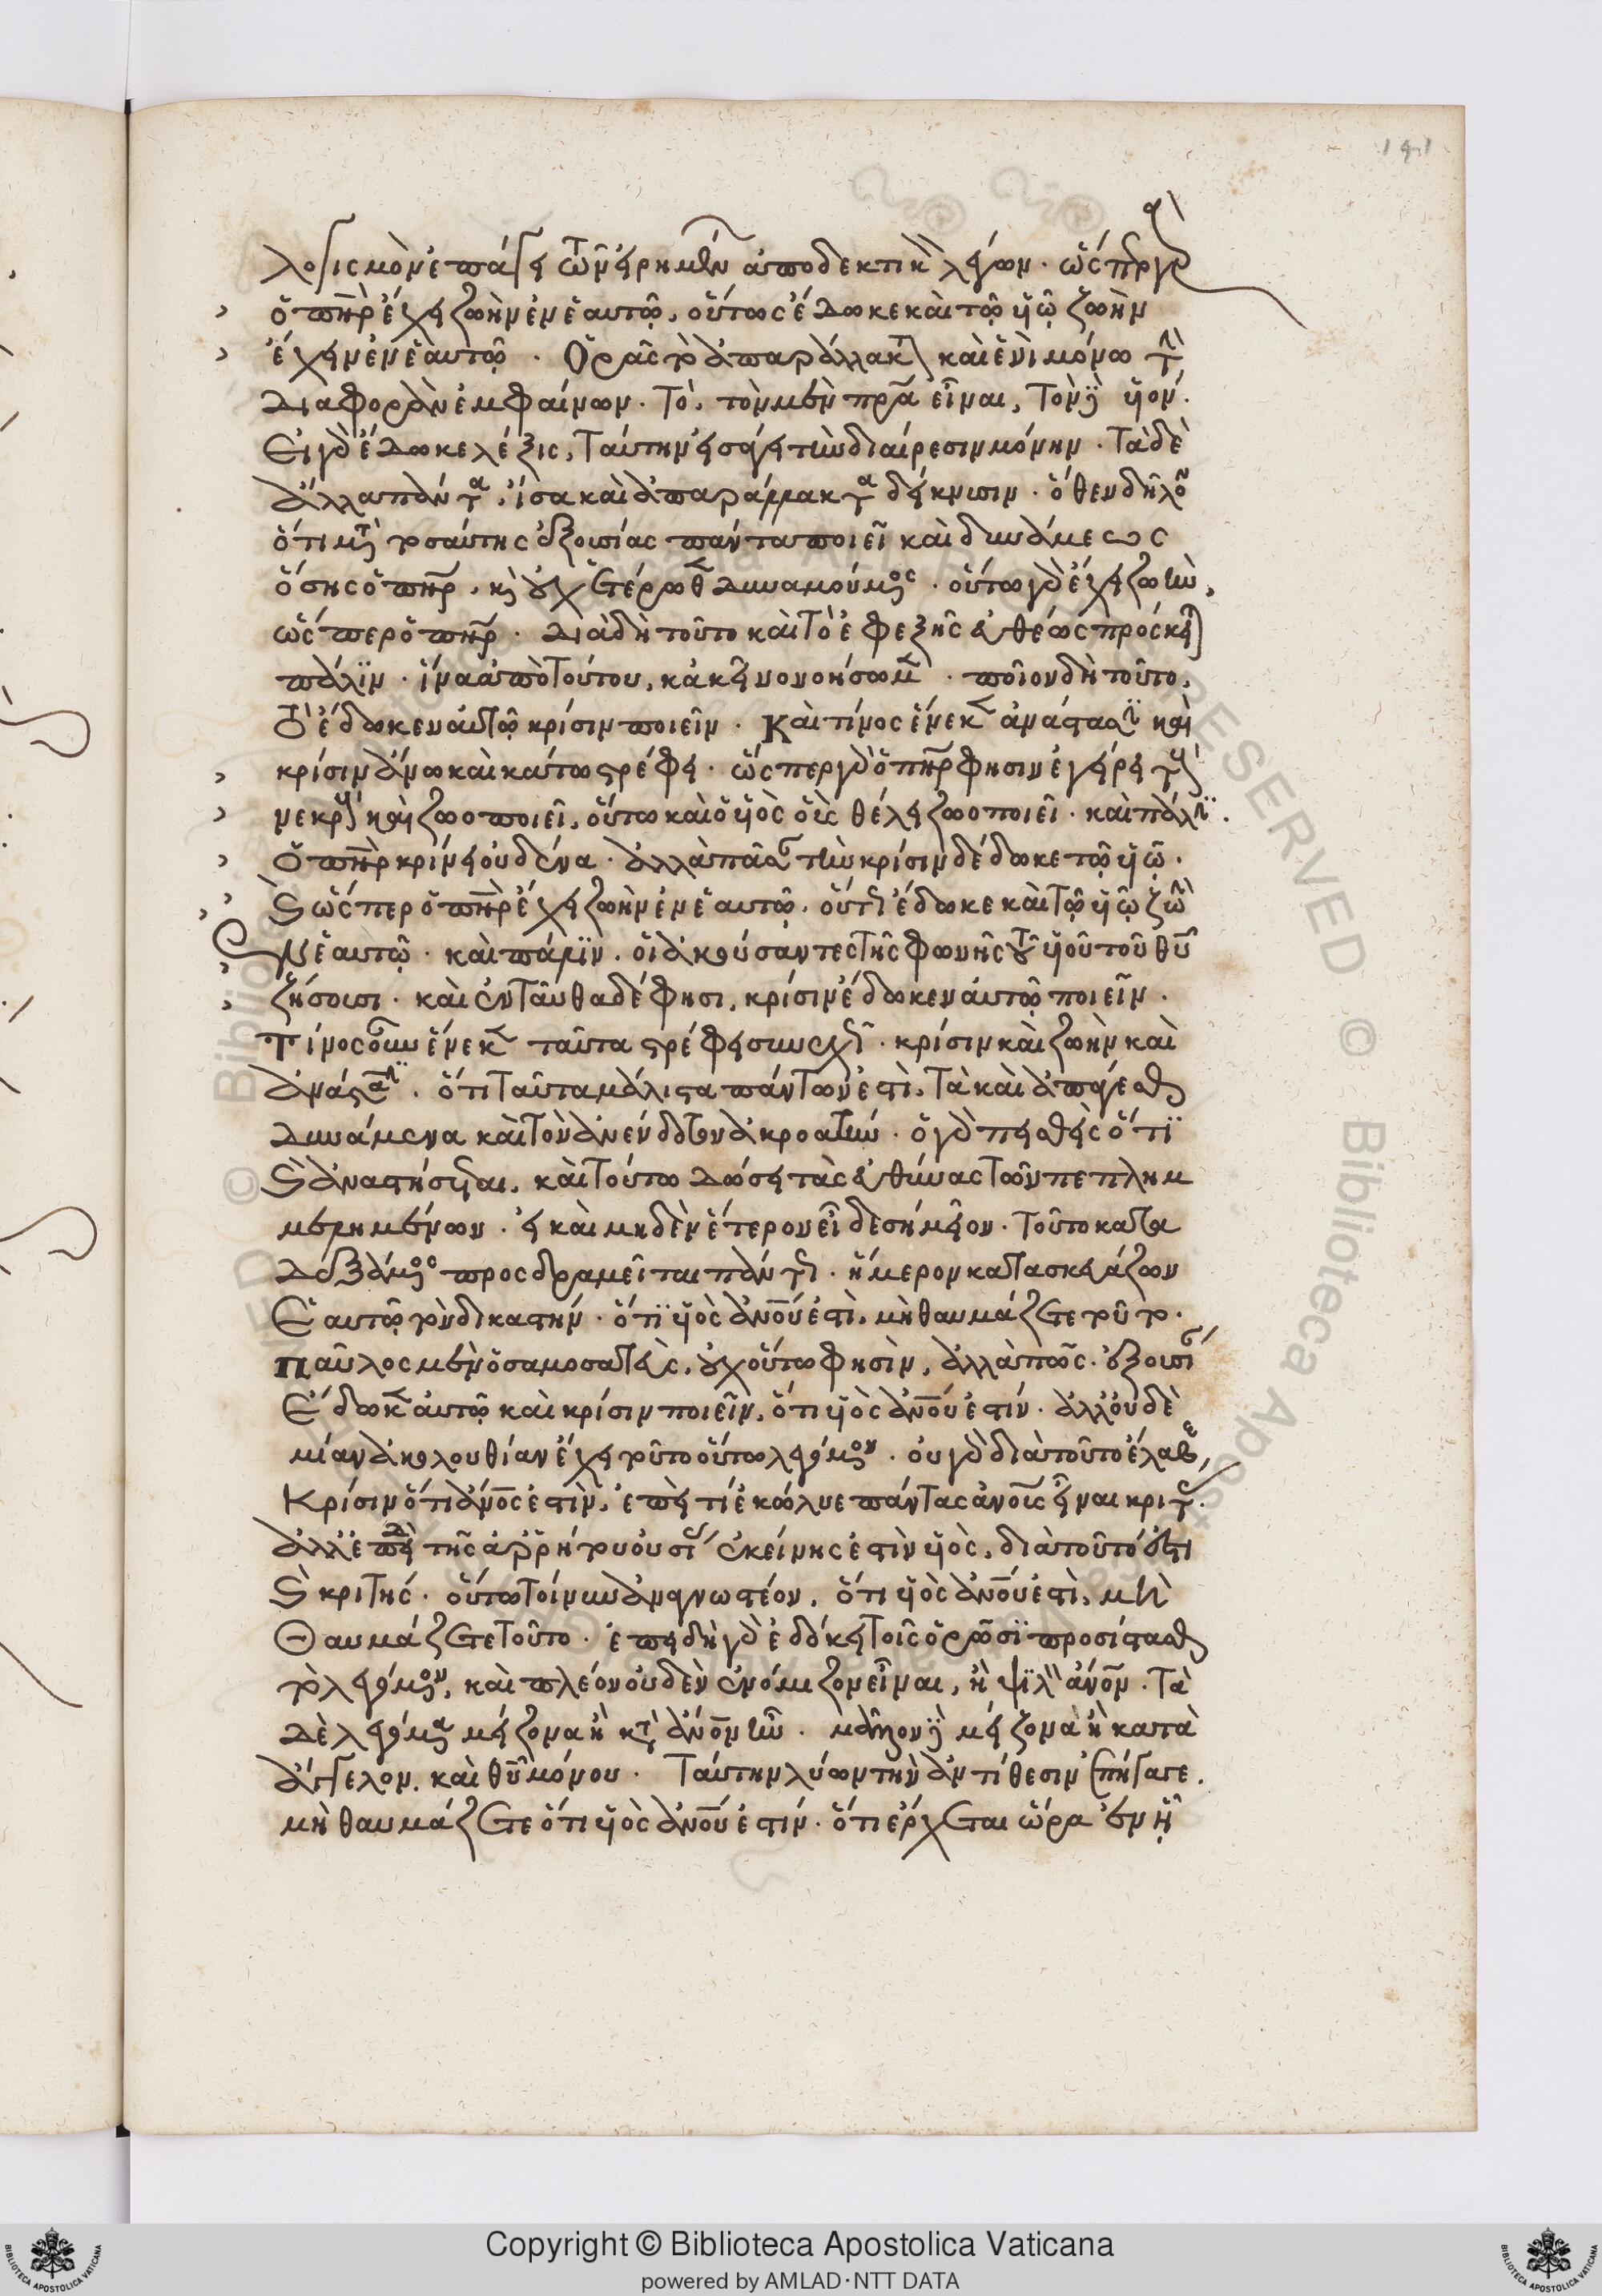 191
λογισμὸν ἐπάγει τῶν εἰρημένων ἀποδεικτικὸν λέγων· ὥσπερ γὰρ
ὁ πὴρ ἔχει ζωὴν ἐν ἑαυτῷ, οὕτως ἔδωκε καὶ τῷ υἱῷ ζωὴν
ἔχειν ἐν ἑαυτῷ. Ὁρᾶς τὸ ἀπαράλλακτον καὶ ἑνὶ μόνω τὴν
διαφορὰν ἐμφαίνων. Τὸ, τὸν μὲν πρα εἶναι, τὸν δὲ υἱόν.
Ἡ γὰρ ἔδωκε λέξις, ταύτην εἰσάγει τὴν διαίρεσιν μόνην. Τὰ δὲ
ἄλλα πάντα, ἴσα καὶ ἀπαράλλακτα δείκνυσιν. ὅθεν δῆλον
ὅτι μετὰ τοσαύτης ἐξουσίας πάντα ποιεῖ καὶ δυνάμεως
ὅσης ὁ πὴρ, καὶ οὐχ ἑτέρωθεν δυναμούμενος. οὕτω γὰρ ἔχει ζωὴν,
ὥσπερ ὁ πὴρ. Διὰ δὴ τοῦτο καὶ τὸ ἐφεξῆς εὐθέως πρόσκειται
πάλϊν. ἵνα ἀπὸ τούτου, κἀκεῖνο νοήσωμεν. ποῖον δὴ τοῦτο,
Τὸ ἔδωκεν αὐτῷ κρίσιν ποιεῖν. Καὶ τίνος ἕνεκεν ἀνάστασιν καὶ
κρίσιν ἄνω καὶ κάτω στρέφει. ὥσπερ γὰρ ὁ πὴρ φησιν ἐγείρει τοὺς
νεκροὺς καὶ ζωοποιεῖ, οὕτω καὶ ὁ υἱὸς οὓς θέλει ζωοποιεῖ. καὶ πάλιν.
Ὁ πὴρ κρίνει οὐδένα. ἀλλὰ πᾶσαν τὴν κρίσιν δέδωκε τῷ υἱῷ.
Καὶ ὥσπερ ὁ πὴρ ἔχει ζωὴν ἐν ἑαυτῷ. οὕτως ἔδωκε καὶ τῷ υἱῷ ζωὴν
ἐν ἑαυτῷ. καὶ πάλϊν. οἱ ἀκούσαντες τῆς φωνῆς τοῦ υἱοῦ τοῦ θυ
ζήσουσι. καὶ ἐνταῦθα δέ φησι, κρίσιν ἔδωκεν αὐτῷ ποιεῖν.
Τίνος οὖν ἕνεκεν ταῦτα στρέφει συνεχῶς. κρίσιν καὶ ζωὴν καὶ
ἀνάστασιν. ὅτι ταῦτα μάλιστα πάντων ἐστὶ, τὰ καὶ ἐπάγεσθαι
δυνάμενα καὶ τὸν ἀνένδοτον ἀκροατὴν. ὁ γὰρ πεισθεὶς ὅτϊ
Καὶ ἀναστήσεται, καὶ τούτω δώσει τὰς εὐθύνας τῶν πεπλημ
μελημένων. εἰ καὶ μηδὲν ἕτερον εἶδε σημεῖον. Τοῦτο κατα
δεξάμενος προσδραμεῖται πάντως. ἥμερον κατασκευάζων
Ἑαυτῷ τὸν δικαστήν. ὅτϊ υἱὸς ἀνου ἐστὶ, μὴ θαυμάζετε τοῦτο.
Παῦλος μὲν ὁ σαμοσατεὺς, οὐχ οὕτω φησὶν, ἀλλὰ πῶς. ἐξουσίαν
Ἔδωκεν αὐτῷ καὶ κρίσιν ποιεῖν, ὅτι υἱὸς ἀνου ἐστίν. ἀλλ' οὐδὲ
μίαν ἀκολουθίαν ἔχει τοῦτο οὕτω λεγόμενον. οὐ γὰρ διὰ τοῦτο ἔλαβε
Κρίσιν ὅτι ἀνος ἐστὶν, ἐπεὶ τί ἐκώλυε πάντας ἀνους εἶναι κριτάς.
ἀλλ' ἐπειδὴ τῆς ἀῤῥήτου οὐσίας ἐκείνης ἐστὶν υἱὸς, διὰ τοῦτό ἐστι
Καὶ κριτής. οὕτω τοίνυν ἀναγνωστέον, ὅτι υἱὸς ἀνου ἐστὶ, μὴ
Θαυμάζετε τοῦτο. ἐπειδὴ γὰρ ἐδόκει τοῖς ὁρῶσϊ προσίστασθαι
τὸ λεγόμενον, καὶ πλέον οὐδὲν ἐνόμιζον εἶναι, ἢ ψϊλὸν ἄνον. Τὰ
δὲ λεγόμενα μείζονα ἢ κατὰ ἄνον ἦν. μᾶλλον δὲ μείζονα ἢ κατὰ
ἄγγελον, καὶ θυ μόνου. Ταύτην λύων τὴν ἀντίθεσιν ἐπήγαγε.
μὴ θαυμάζετε ὅτι υἱὸς ἀνου ἐστίν. ὅτι ἔρχεται ὥρα ἐν ᾗ
© Biblioteca Apostolica Vaticana
Copyright © Biblioteca Apostolica Vaticana
powered by AMLAD·NTT DATA
BIBLIOTECA APOSTOLICA VATICANA
BIBLIOTECA APOSTOLICA VATICANA